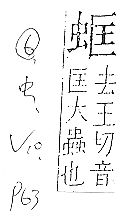 去王切音
匡大蟲也
⑥
虫
V10.
P63